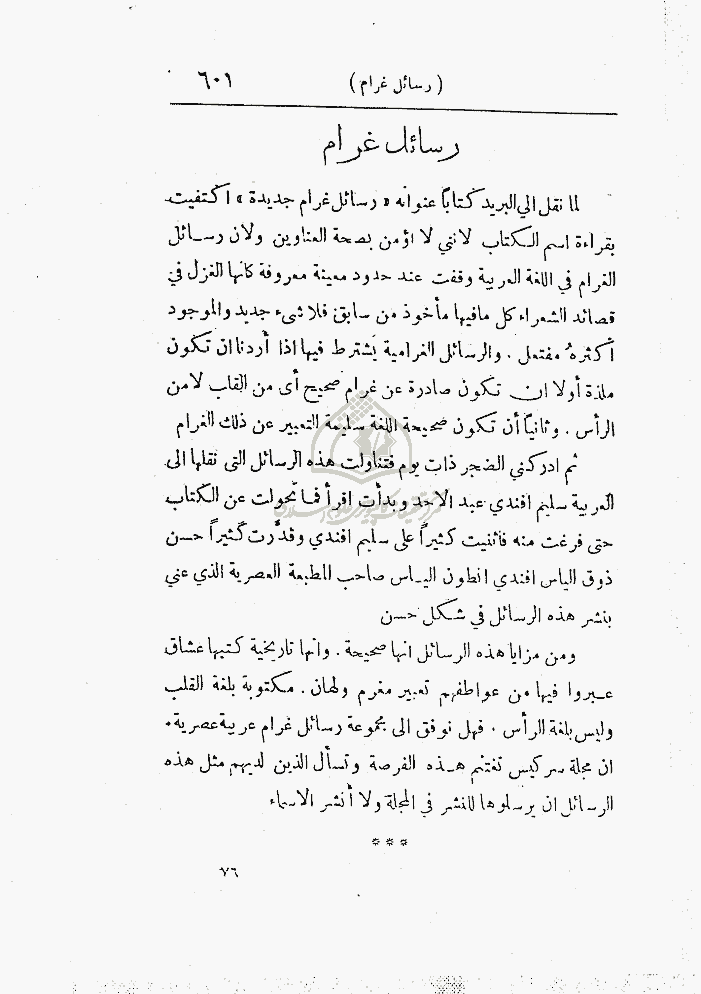 ٦٠١ ( رسائل غرام )
رسائل غرام
لما نقل الي البريد كتاباً عنوانه « رسائل غرام جديدة » اكتفيت
بقراءة اسم الكتاب لانني لا اؤمن بصحة العناوين ولان رسائل
الغرام في اللغة العربية وقفت عند حدود معينة معروفة كانها الغزل في
قصائد الشعراء كل مافيها مأخوذ من سابق فلا شيء جديد والموجود
أكثره مفتعل . والرسائل الغرامية يشترط فيها اذا أردنا ان تكون
ملذة أولا ان تكون صادرة عن غرام صحيح أى من القاب لامن
الرأس . وثانياً أن تكون صحيحة اللغة سليمة التعبير عن ذلك الغرام
ثم ادركني الضجر ذات يوم فتناولت هذه الرسائل التى نقلها الى
العربية سليم افندي عبد الاحد وبدأت اقرأ فما تحولت عن الكتاب
حتى فرغت منه فاثنيت كثيراً على سليم افندي وقدَّرت كثيراً حسن
ذوق الياس افندي انطون الياس صاحب المطبعة العصرية الذي عني
بنشر هذه الرسائل في شكل حسن
ومن مزايا هذه الرسائل انها صحيحة . وانها تاريخية كتبها عشاق
عبروا فيها من عواطفهم تعبير مغرم ولهان . مكتوبة بلغة القلب
وليس بلغة الرأس . فهل نوفق الى مجموعة رسائل غرام عربية عصرية .
ان مجلة سركيس تغتنم هذه الفرصة وتسأل الذين لديهم مثل هذه
الرسائل ان يرسلوها للنشر في المجلة ولا أنشر الاسماء
* * *
٧٦